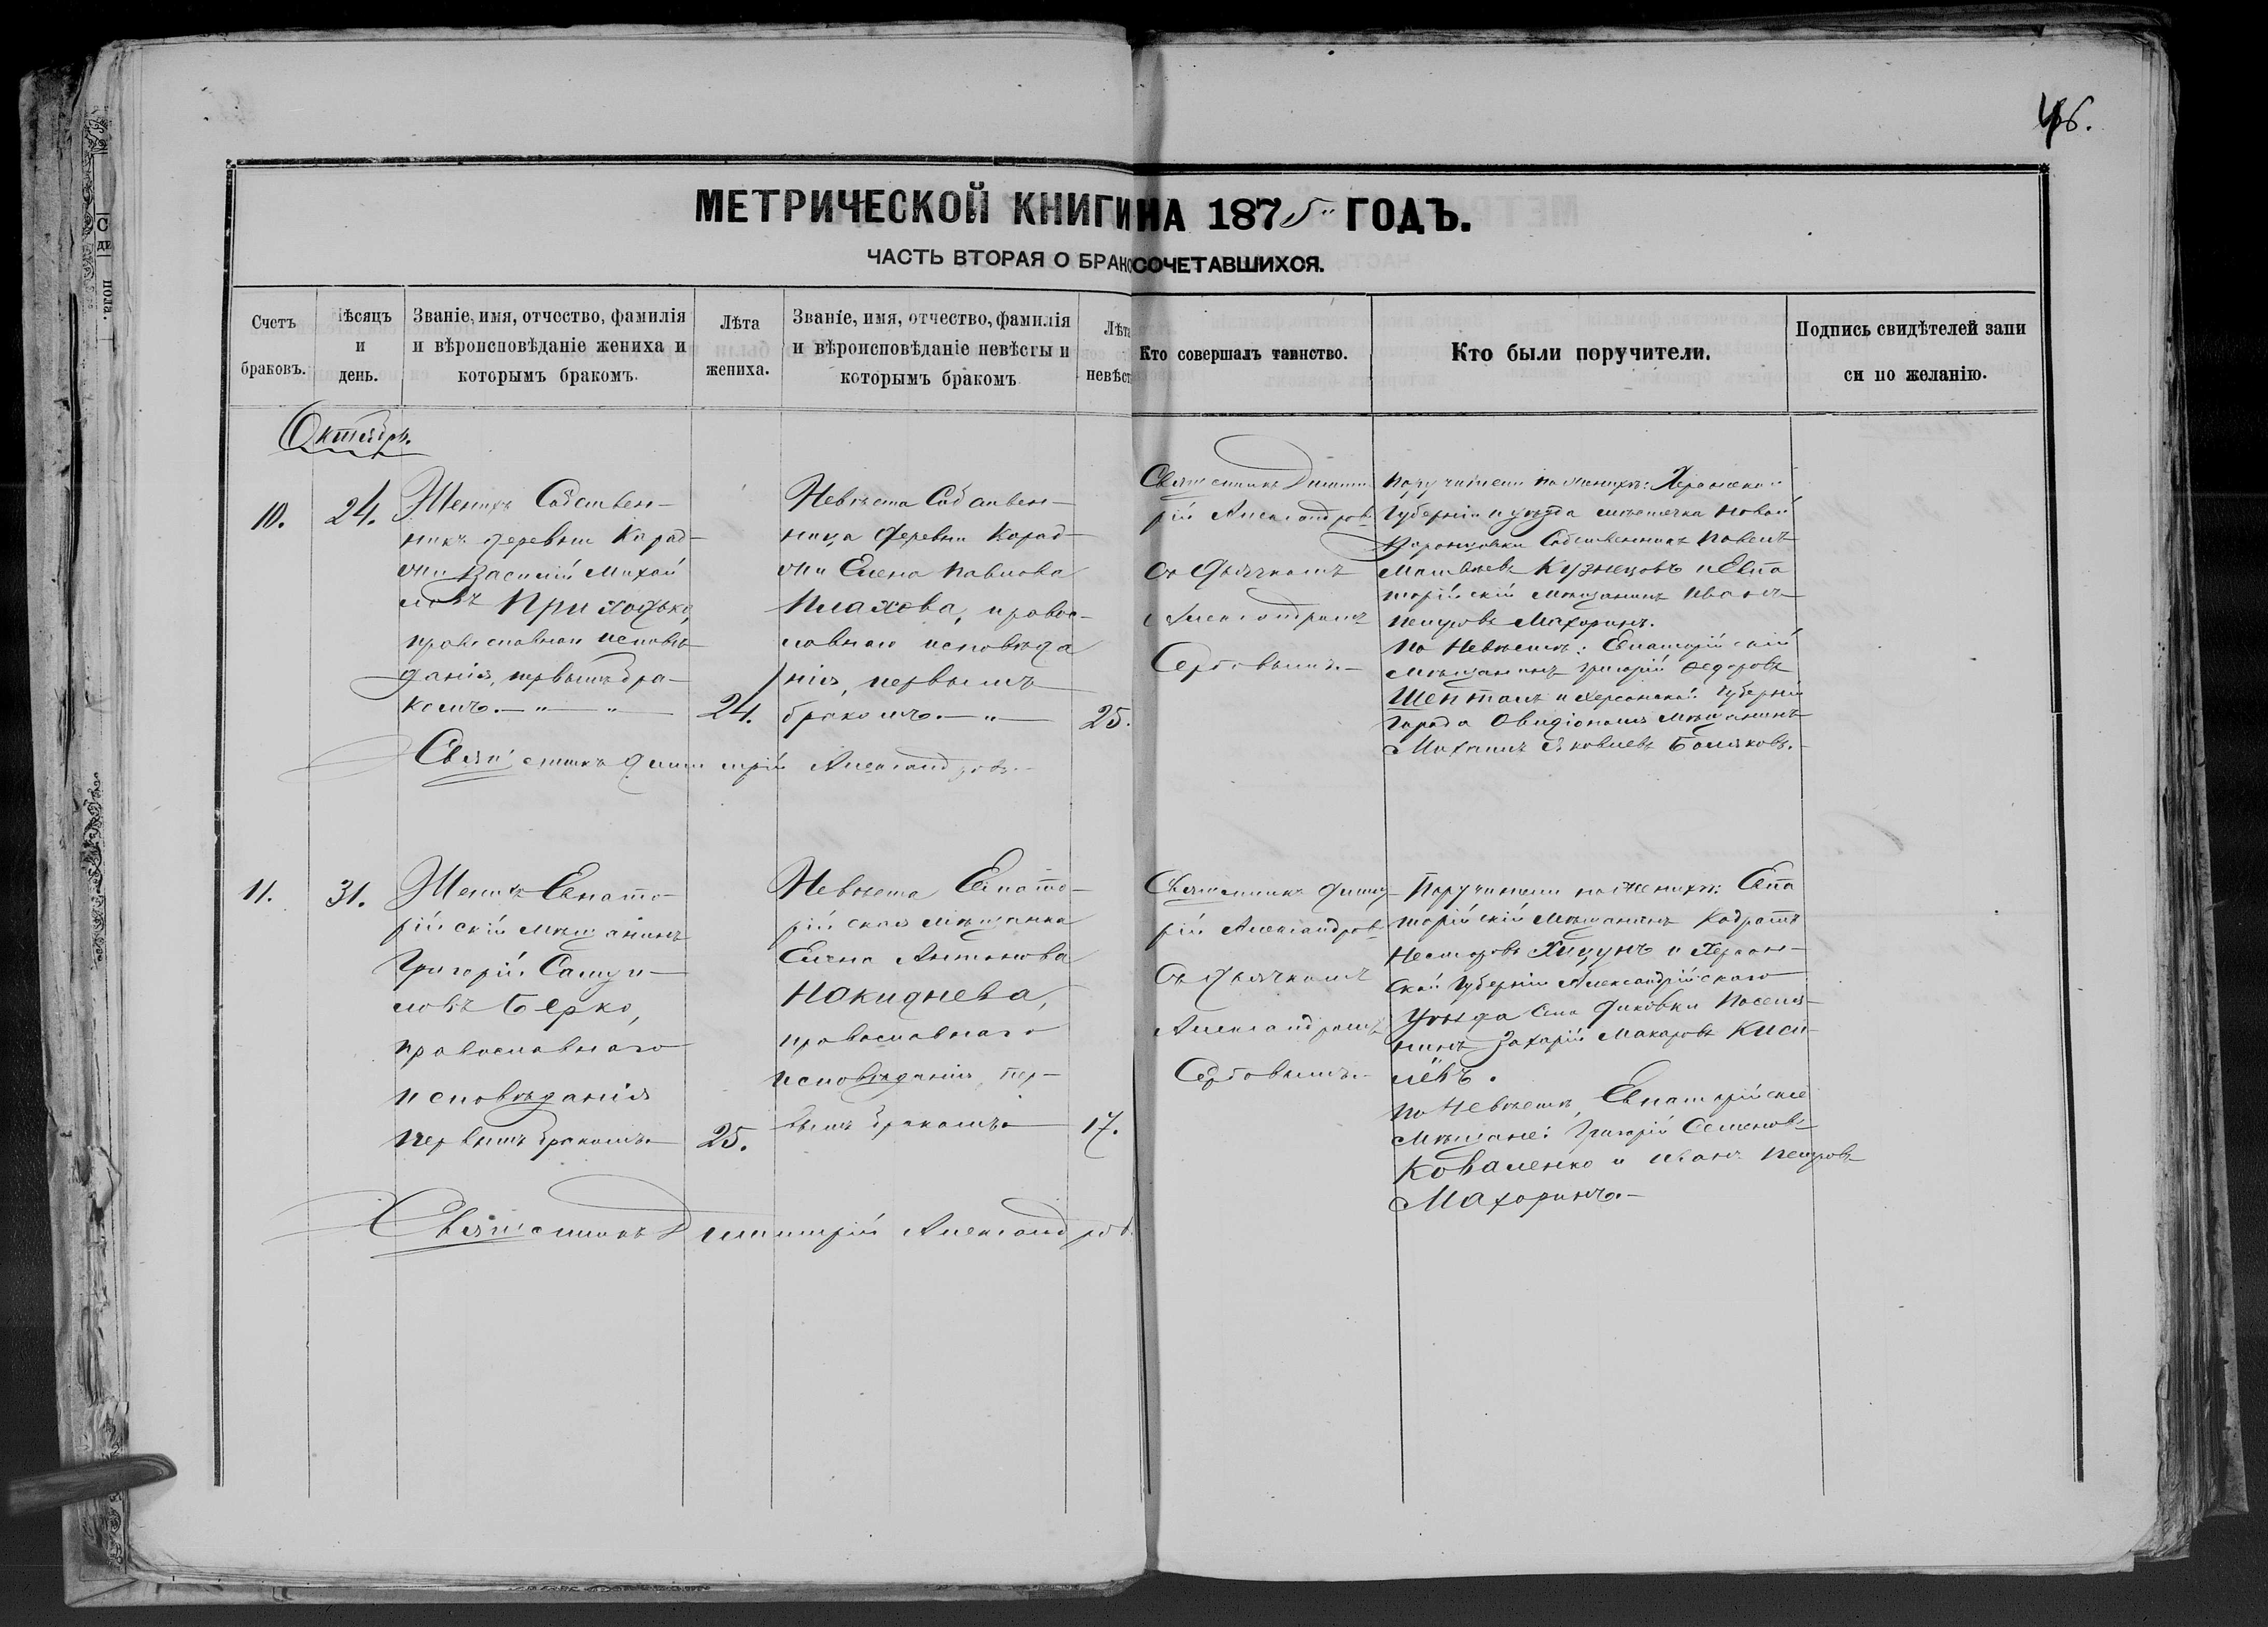 46.
МЕТРИЧЕСКОЙ КНИГИ НА 1875 ГОДЪ.
ЧАСТЬ ВТОРАЯ О БРАКОСОЧЕТАВШИХСЯ.
Счетъ
браковъ.
ѣсяцъ
и
день.
Званіе, имя, отчество, фамилія
и вѣроисповѣданіе жениха и
которымъ бракомъ.
Лѣта
жениха.
Званіе, имя, отчество, фамилія
и вѣроисповѣданіе невѣсты и
которымъ бракомъ
Лѣта
невѣст
Кто совершалъ таинство.
Кто были поручители.
Подпись свидѣтелей запи
си по желанію.
Октябрь.
10.
24.
Женихъ Собствен-
никъ деревни Карад-
жи Василій Михай
ловъ Приходько,
православнаго исповѣ-
данія, первымъ бра-
комъ.
24.
Невѣста Собствен-
ница деревни Карад-
жи Елена Павлова
Плахова, правос-
лавнаго исповѣда
нія, первымъ
бракомъ.
25.
Священникъ Димит
рій Александров
Съ Дьячкомъ
Александромъ
Сербовымъ.
Поручители по женихѣ: Херсонской
Губерніи и уѣзда мѣстечка Новой
Воронцовки Собственникъ Павелъ
Матвѣевъ Кузнецовъ и Евпа
торійскій мѣщанинъ Иванъ
Петровъ Махоринъ.
По Невѣстѣ: Евпаторійскій
мѣщанинъ Григорій Федоровъ
Шепталь и Херсонской Губерніи
города Овидіополя мѣщанинъ
Михаилъ Яковлевъ Боляковъ.
Священникъ Димитрій Александровъ
11.
31.
Женихъ Евпато-
рійскій мѣщанинъ
Григорій Самуи-
ловъ Берко,
православнаго
исповѣданія
первымъ бракомъ
25.
Невѣста Евпато-
рійская мѣщанка
Елена Антонова
Накиднева,
православнаго
исповѣданія, пер-
вымъ бракомъ
17.
Священникъ Димит
рій Александров
Съ Дьячкомъ
Александромъ
Сербовымъ.
Поручители по женихѣ: Евпа
торійскій мѣщанинъ Кодратъ
Несторовъ Хицунъ и Херсон-
ской Губерніи Александрійскаго
Уѣзда села Диковки Поселя-
нинъ Захарій Макаровъ Кисе-
лёвъ.
По Невѣстѣ, Евпаторійскіе
Мѣщане: Григорій Семеновъ
Коваленко и Иванъ Петровъ
Махоринъ.
Священникъ Димитрій Александров